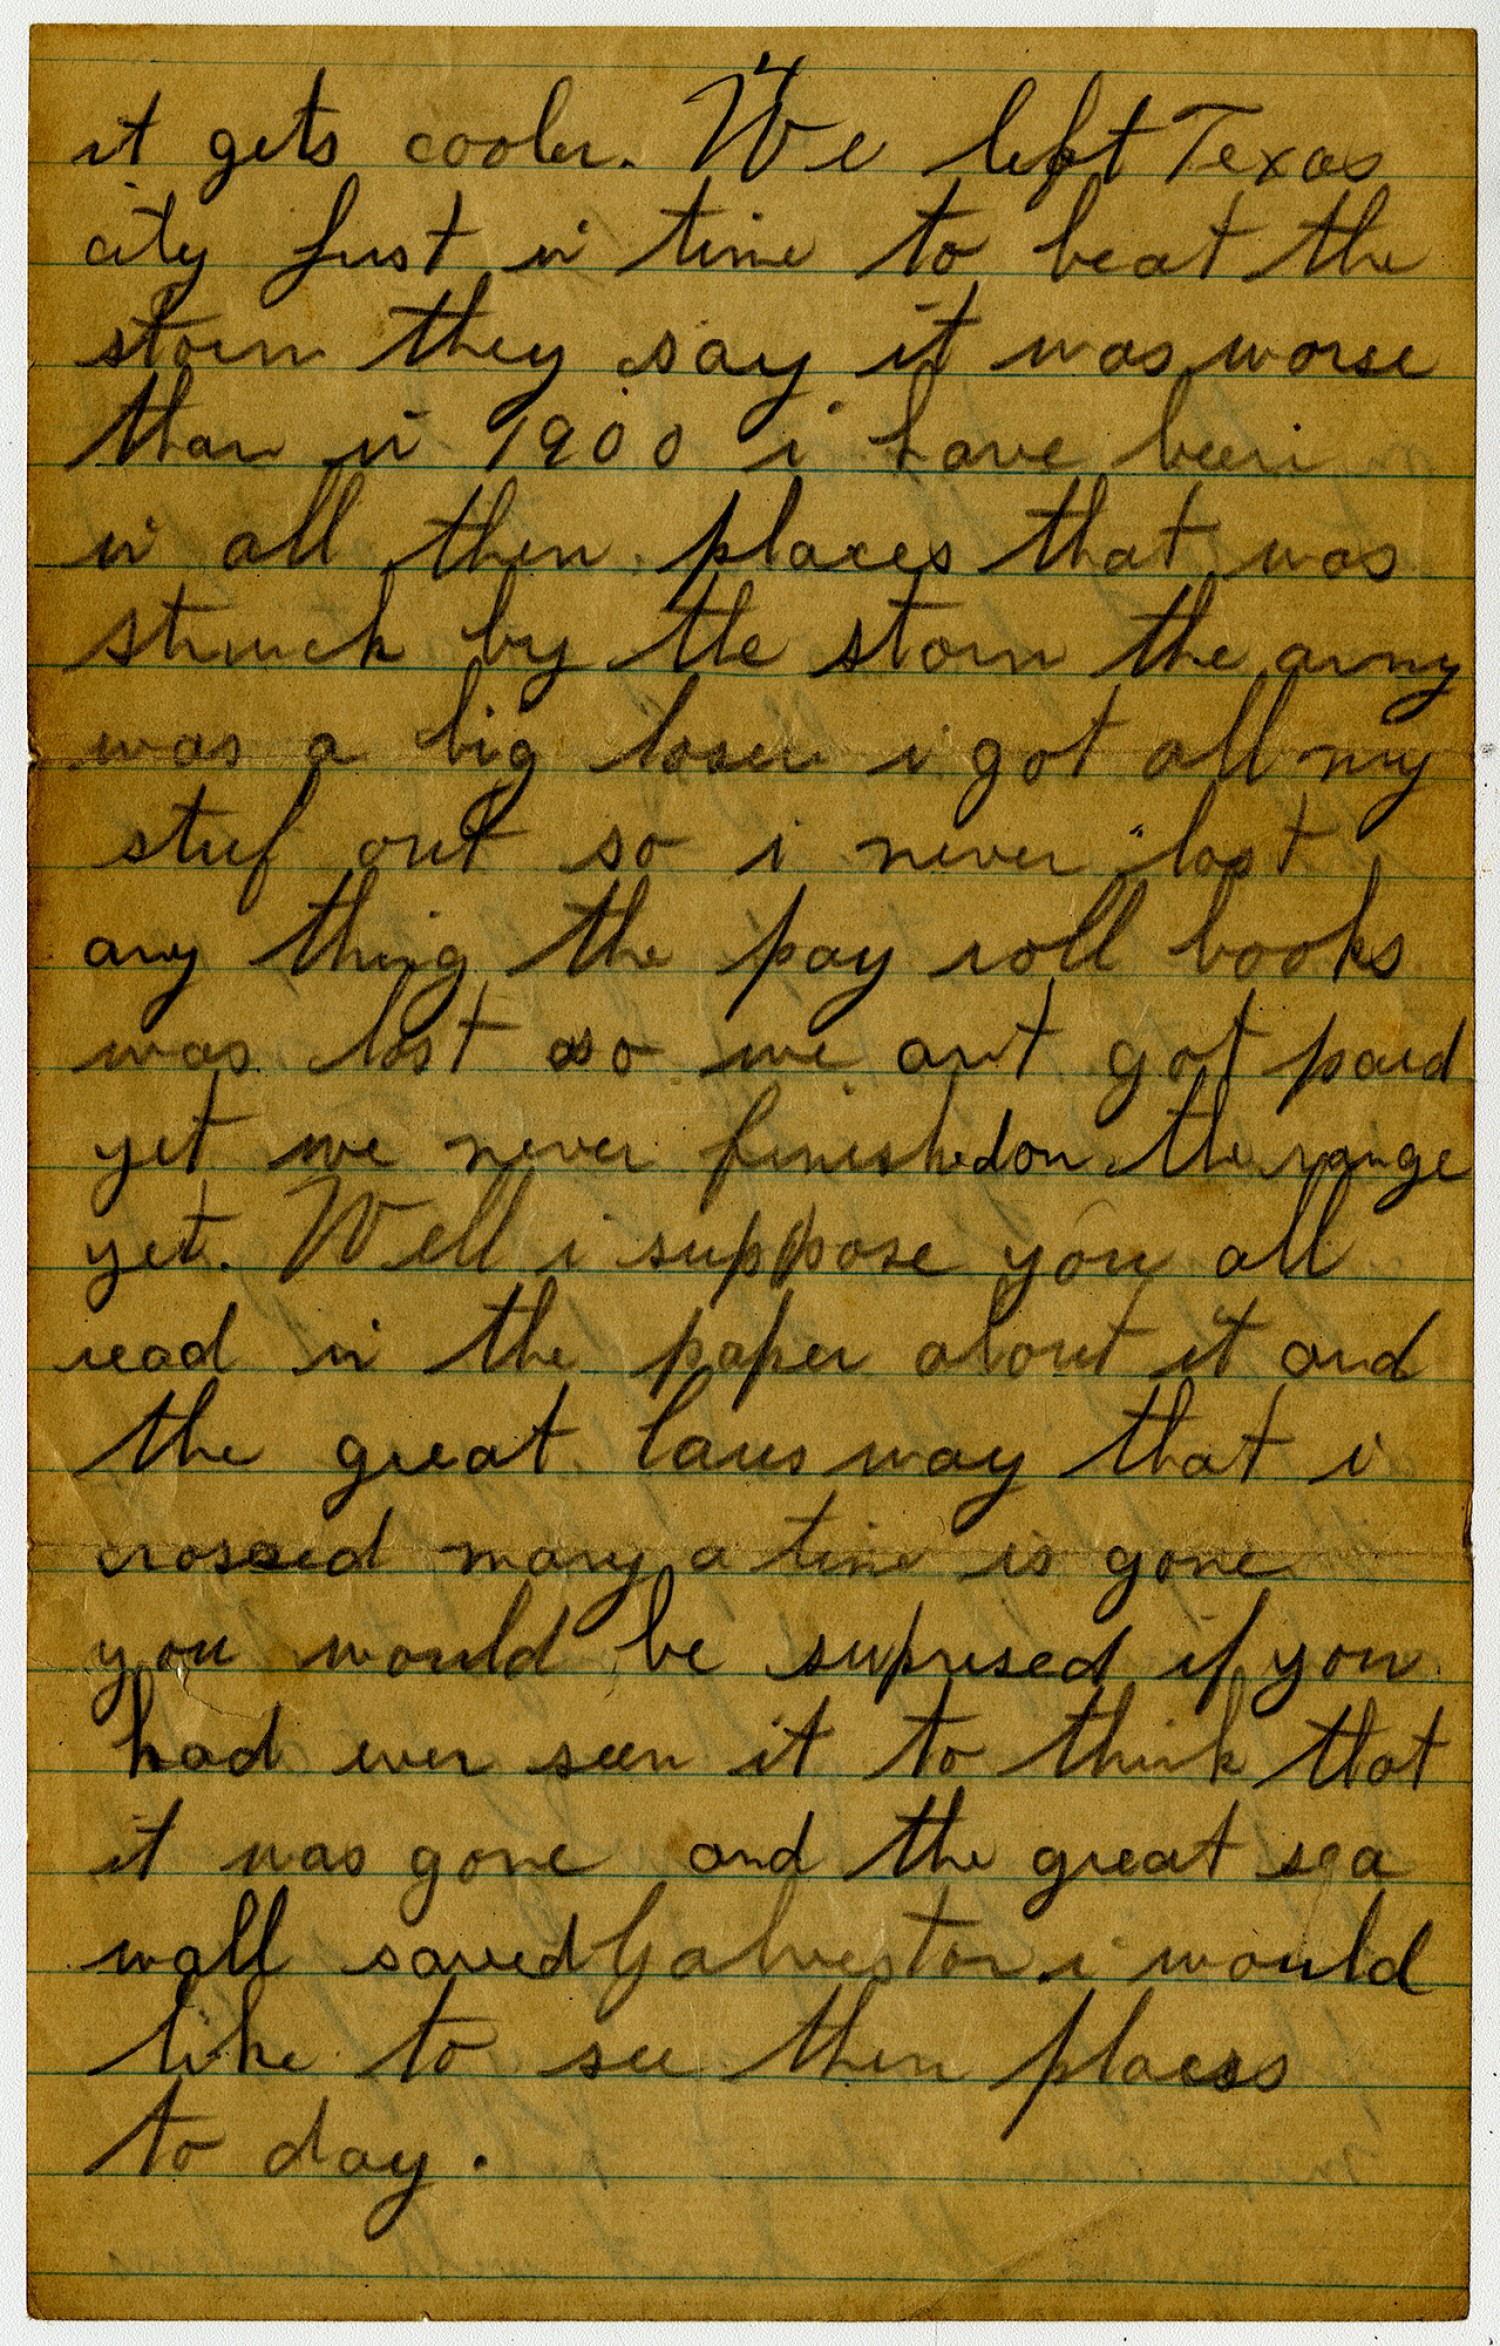 4
it gets cooler. We left Texas
city just in time to beat the
storm they say it was worse
than in 1900 i have been
in all them places that was
struck by the storm the army
was a big loser i got all my
stuf out so i never lost
any thing the pay roll books
was lost so we ant got paid
yet we never finished on the range
yet. Well i suppose you all
read in the paper about it and
the great Caus way that i
crossed many a time is gone
you would be suprised if you
had ever seen it to think that
it was gone and the great sea
wall saved Galveston i would
like to see them places
to day.